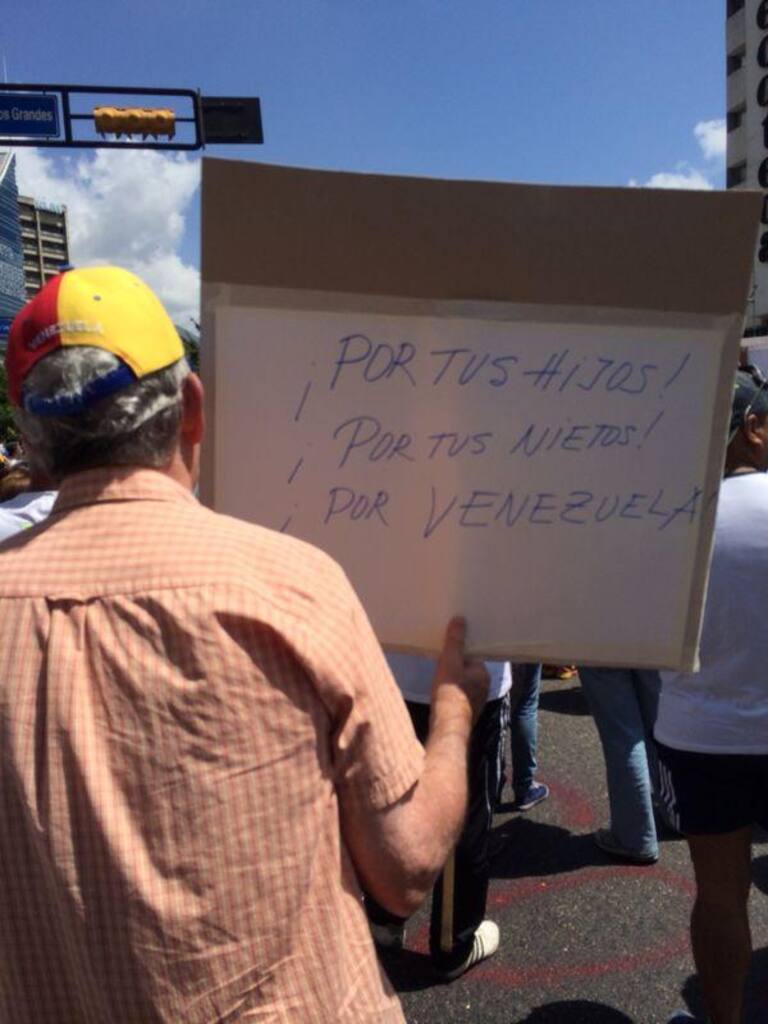 os Grandes
VENEZUELA
¡POR TUS HIJOS!
¡POR TUS NIETOS!
¡POR VENEZUELA